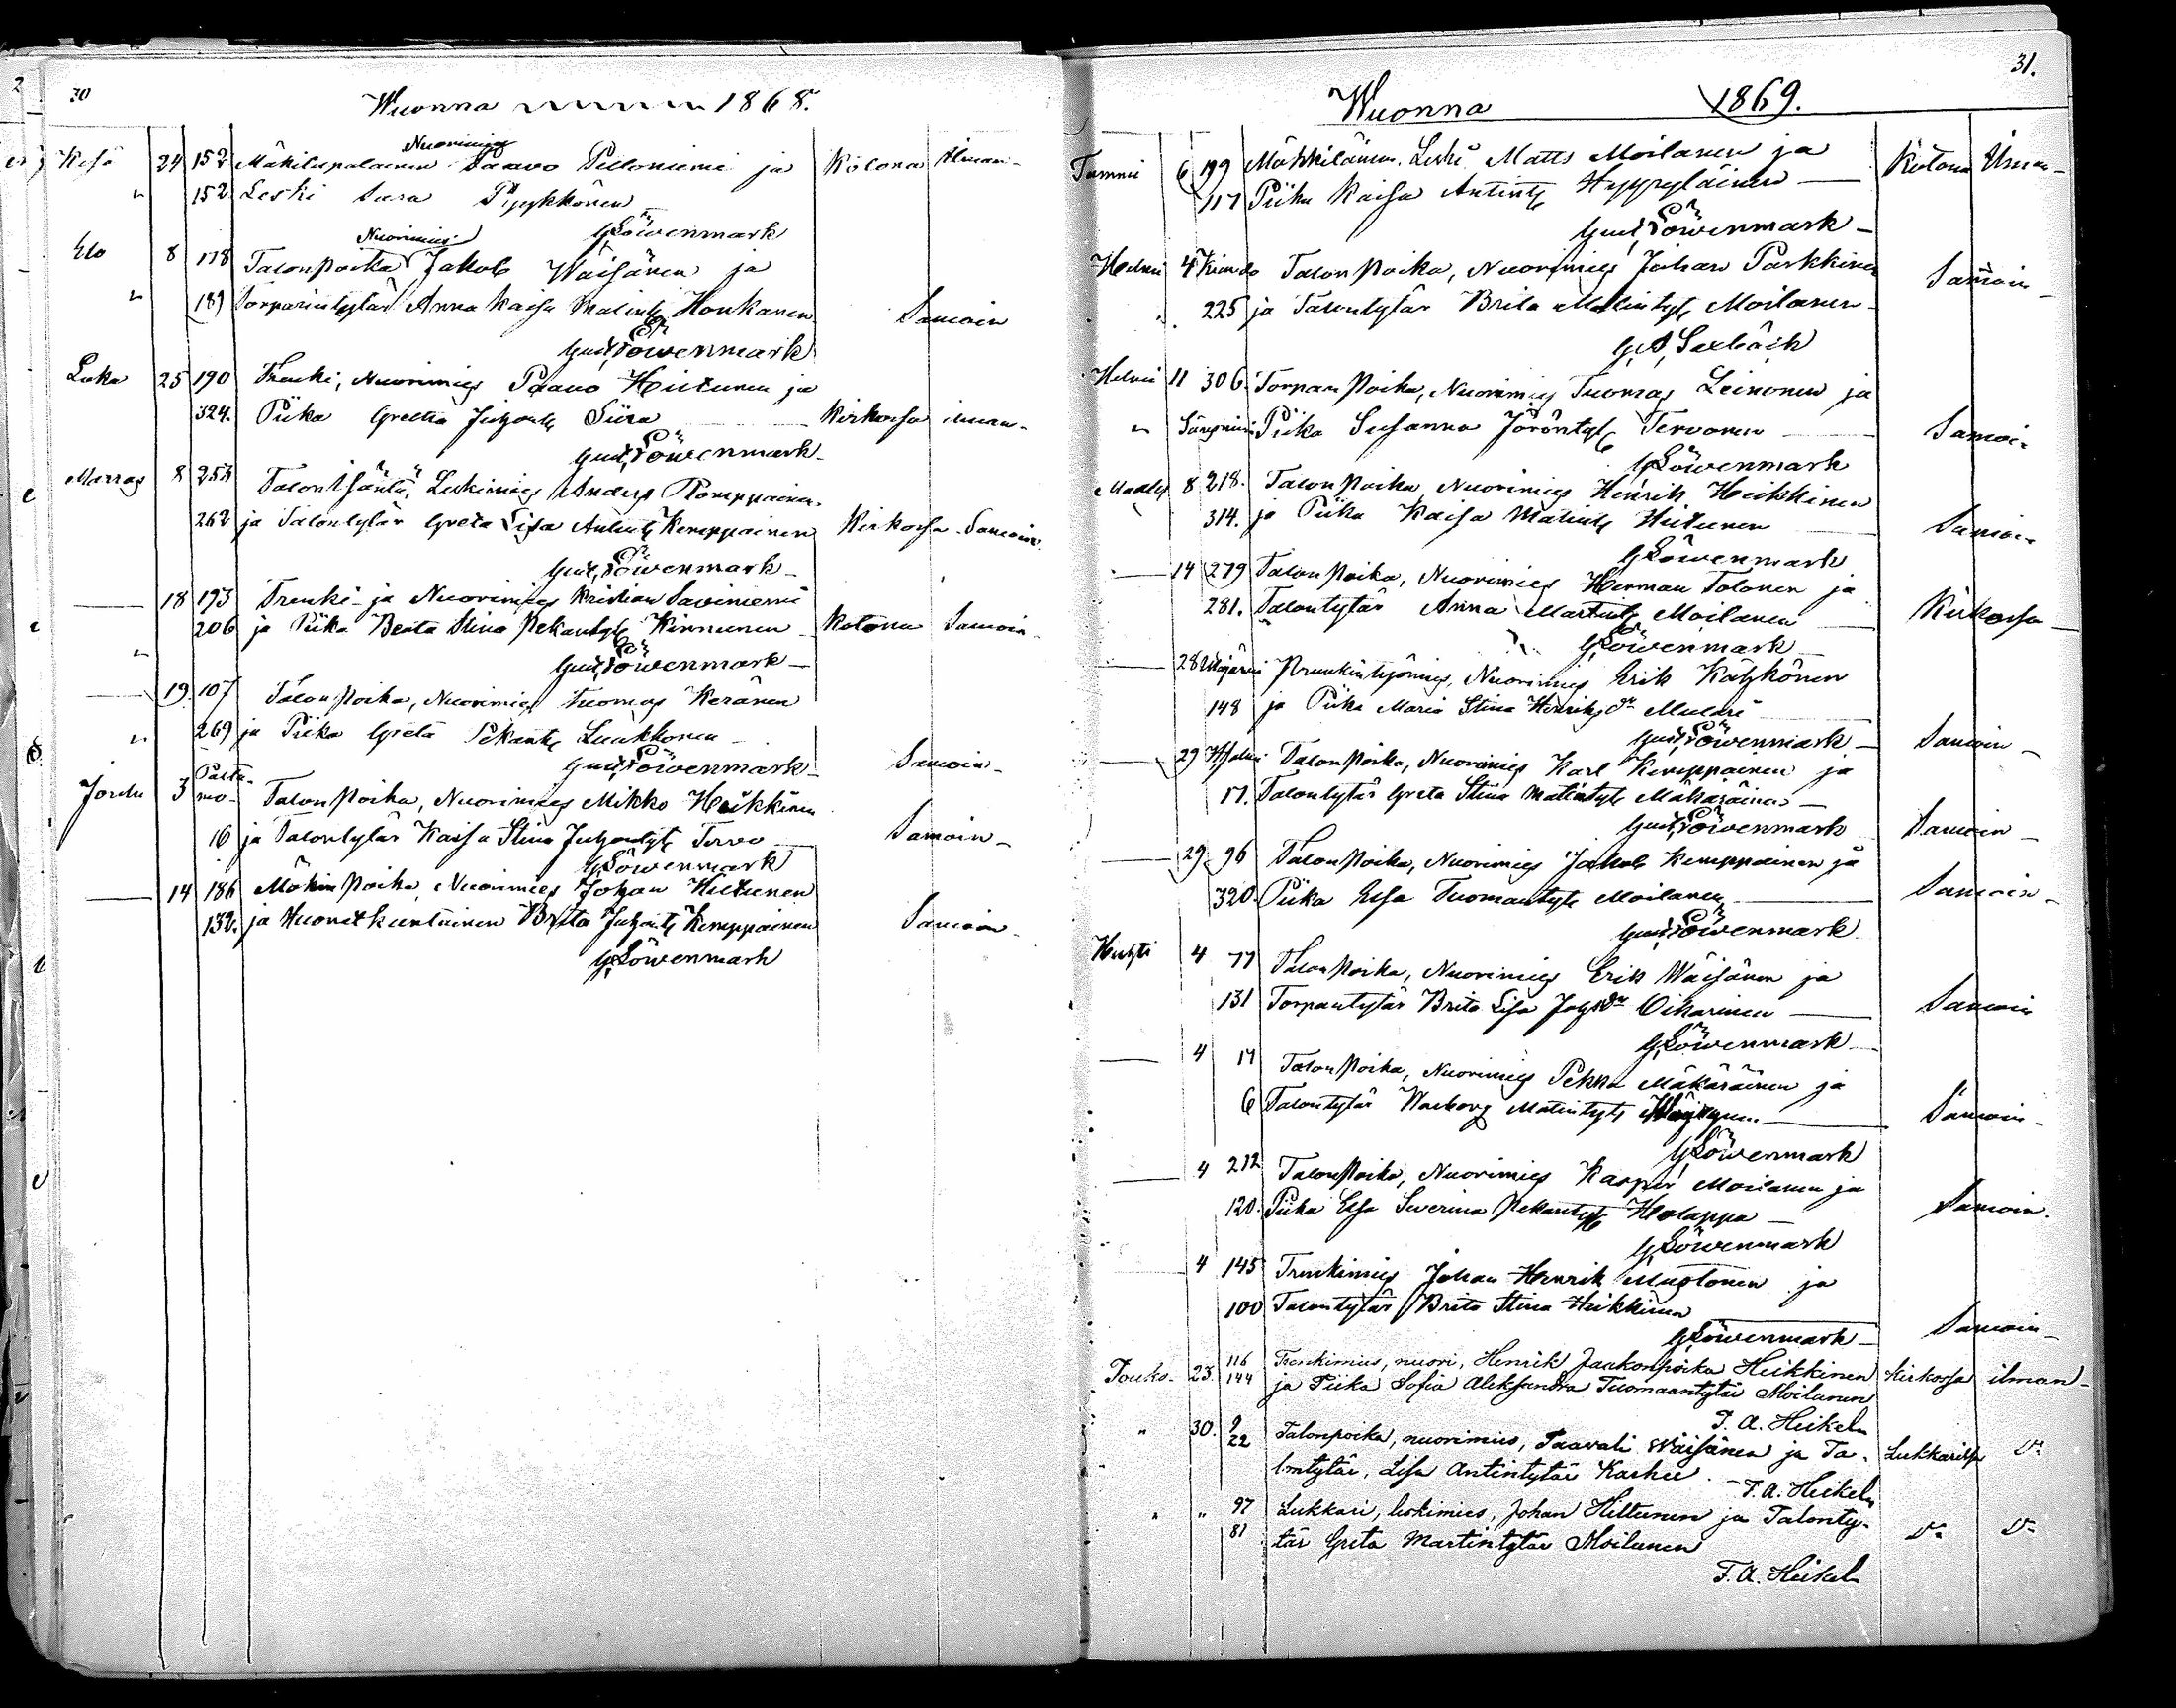 30
Wuonna 1868.
Nuorimies
Kesä 24 152 Mäkitupalainen Paavo Pelloniemi ja Kotona Ilman
" 152 Leski Sara Pyykkönen
G Löwenmark
Nuorimies
Elo 8 178 Talonpoika Jakob Wäisänen ja
" 189 Torparintytär Anna Kaisa Matints Honkanen Samoin
Gust. Löwenmark
Loka 25 190 Trenki, Nuorimies Paavo Hiltunen ja
324. Piika Gretha Juhonts Siira Kirkossa ilman
Gust. Löwenmark
Marras 8 253 Talon Isäntä, Leskimies Anders Komppainen
262 ja Talontytär Greta Lisa Antints Kemppainen Kirkossa Samoin
Gust. Löwenmark
18 193 Trenki ja Nuorimies Kristian Saviniemi
" 206 ja Piika Beata Stina Pekantyt Kinnunen Kotona Samoin
Gust. Löwenmark
19. 107 Talonpoika, Nuorimies Tuomas Keränen
" 269 ja Piika Greta Pekants Luukkonen
Gust. Löwenmark Samoin
Joulu 3 Paltamo Talonpoika, Nuorimies Mikko Heikkinen
16 ja Talontytär Kaisa Stina Juhontyt Tervo Samoin
G Löwenmark
14 186 Mökinpoika, Nuorimies Johan Hiltunen
132. ja Huonetkuntainen Brita Juhonts Kemppainen Samoin
G Löwenmark
31.
Wuonna 1869.
Tammi 6 199 Mökkiläinen, Leski Matts Moilanen ja Kotona Ilman
117 Piika Kaisa Antints Hyyryläinen
Gust. Löwenmark
Helmi 4 Talonpoika, Nuorimies Johan Parkkinen Samoin
" 225 ja Talontytär Brita Matintyt Moilanen
G. A. Saxbäck
Helmi 11 306. Torpanpoika, Nuorimies Tuomas Leinonen ja
" Piika Susanna Jöröntyt Tervonen Samoin
G Löwenmark
Maalis 8 218. Talonpoika, Nuorimies Henrik Heikkinen
314. ja Piika Kaisa Matints Hiltunen Samoin
G Löwenmark
14 279 Talonpoika, Nuorimies Herman Tolonen ja
281. Talontytär Anna Martints Moilanen Kirkossa
G Löwenmark
28 Pruukintyömies, Nuorimies Erik Kätkönen
148 ja Piika Maria Stina Henriks dr Mulari
Gust. Löwenmark Samoin
29 Talonpoika, Nuorimies Karl Kemppainen ja
17. Talontytär Greta Stina Matintyt Mäkäräinen
Gust. Löwenmark Samoin
29 96 Talonpoika, Nuorimies Jakob Kemppainen ja
320. Piika Elsa Tuomantyt Moilanen Samoin
Gust. Löwenmark
Huhti 4 77 Talonpoika, Nuorimies Erik Wäisänen ja
131 Torpantytär Brita Lisa Joh dr Oikarinen Samoin
G Löwenmark
4 17 Talonpoika, Nuorimies Pekka Mäkäräinen ja
6 Talontytär Warborg Matintyt Samoin
G Löwenmark
4 212 Talonpoika, Nuorimies Kasper Moilanen ja
120. Piika Elsa Severina Pekantyt Holappa Samoin
G Löwenmark
4 145 Trenkimies Johan Henrik Mustonen ja
100 Talontytär Brita Stina Heikkinen
G Löwenmark Samoin
Touko 23. 116 Trenkimies, nuori, Henrik Jaakonpoika Heikkinen Kirkossa ilman
144 ja Piika Sofia Aleksandra Tuomaantytär Moilanen
F. A. Heikel
" 30. 9 Talonpoika, nuorimies, Paavali Wäisänen ja Ta- Lukkarissa Do
22 lontytär, Lisa Antintytär Karhu
F. A. Heikel
" " 97 Lukkari, leskimies, Johan Hiltunen ja Talonty- Do Do
81 tär Greta Martintytär Moilanen
F. A. Heikel